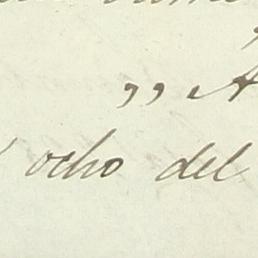 „ A
ocho del